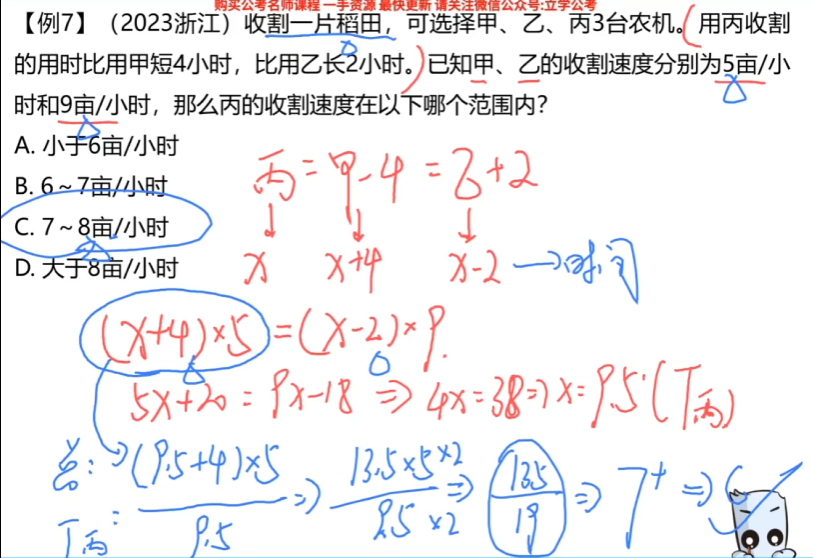 购买公考名师课程 一手资源 最快更新 请关注微信公众号:立学公考
【例7】（2023浙江）收割一片稻田，可选择甲、乙、丙3台农机。用丙收割
的用时比用甲短4小时，比用乙长2小时。已知甲、乙的收割速度分别为5亩/小
时和9亩/小时，那么丙的收割速度在以下哪个范围内？
A. 小于6亩/小时
B. 6～7亩/小时
C. 7～8亩/小时
D. 大于8亩/小时
丙=甲-4=乙+2
↓ ↓ ↓
x x+4 x-2 →时间
(x+4)×5=(x-2)×9.
5x+20=9x-18 ⇒ 4x=38⇒x=9.5(T丙)
总: (9.5+4)×5 ⇒ 13.5×5×2 ⇒ 135 ⇒ 7⁺ ⇒
T丙: 9.5 9.5×2 19